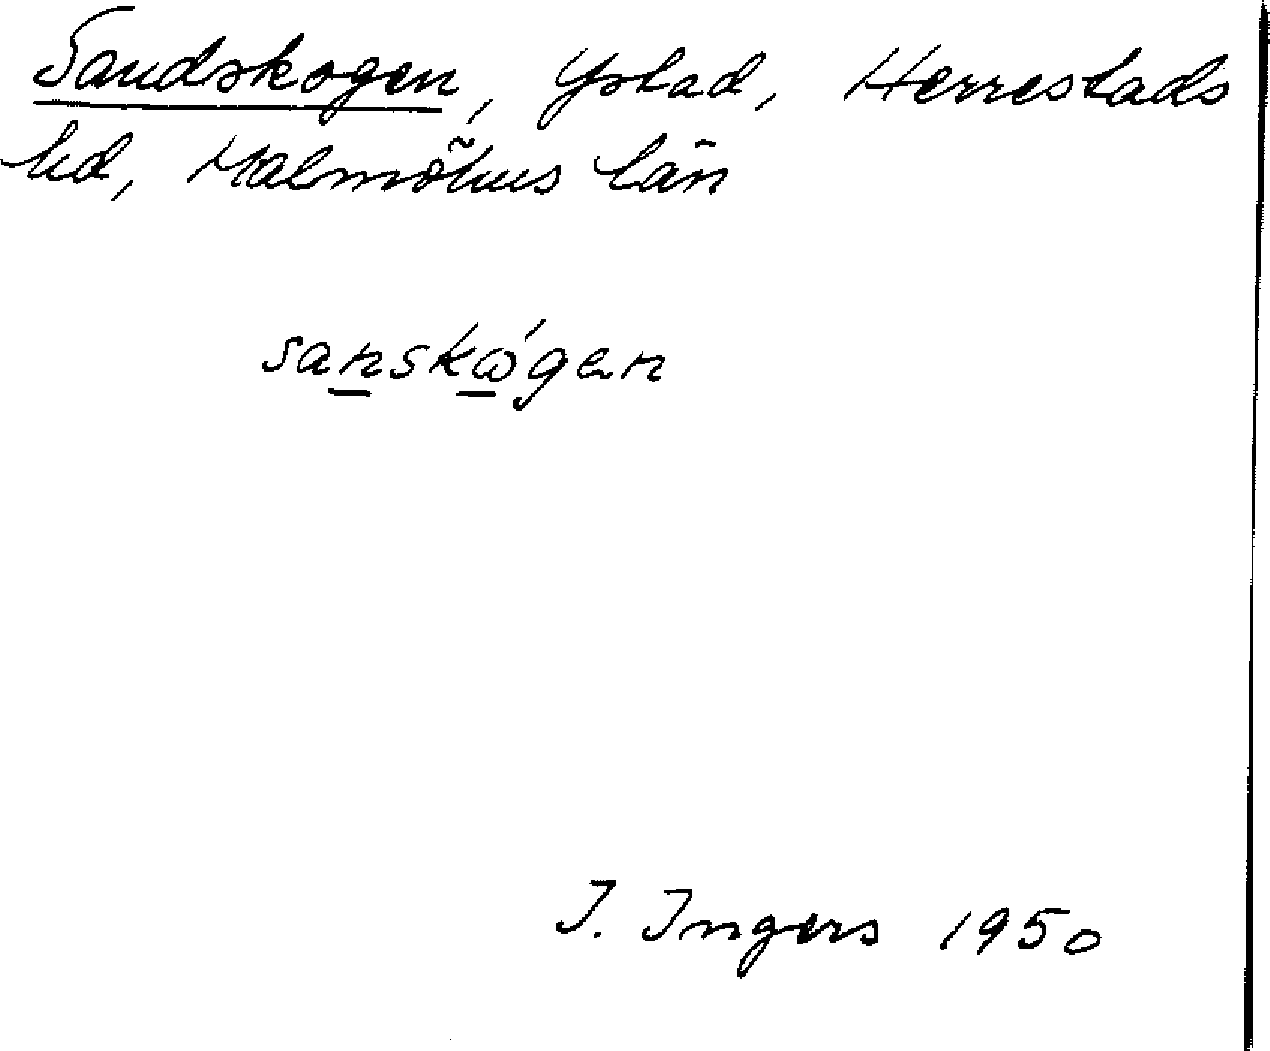 Sandskogen, Ystad, Herrestads
hd, Malmöhus län
sanskǿgen
I. Ingers 1950